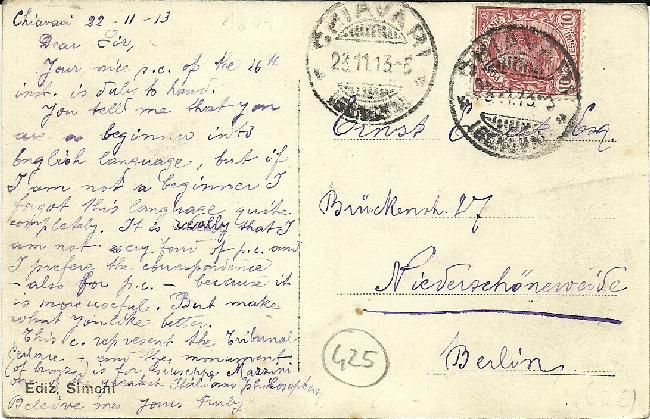 Chiavari 22-11-13
Dear Sir,
Your nice p.c. of the 16th
inst. is duly to hand.
You tell me that you
are a beginner into
English language, but if
I am not a beginner I
forgot this language quite
completely. It is really that I
am not very fond of p.c. and
I prefere the correspondence
- also for p.c. - because it
is more useful. But make
what you like better.
This c. represent the Tribunal
square - and the monument
(of bronze) is for Giuseppe Mazzini
one of the greatest Italians philosophers
Beleive me yours truly
Ediz. Simoni
CHIAVARI
23.11.13-5
(GENOVA)
CHIAVARI
23.11.13-5
(GENOVA)
10
Ernst
Brückenstr. 27
Niederschöneweide
Berlin
425